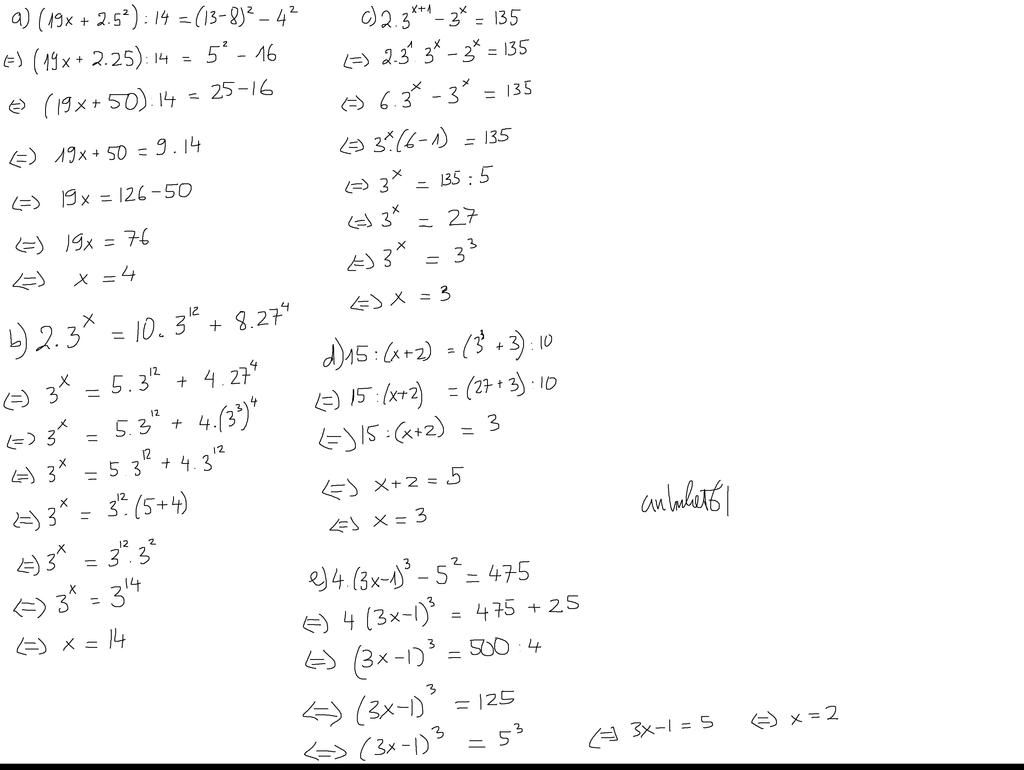 a) (19x + 2.5²) : 14 = (13-8)² - 4²
(=) (19x + 2.25) : 14 = 5² - 16
(=) (19x + 50) : 14 = 25-16
<=> 19x + 50 = 9 . 14
<=> 19x = 126 - 50
<=> 19x = 76
<=> x = 4
b) 2. 3^x = 10. 3^12 + 8.27^4
<=> 3^x = 5. 3^12 + 4. 27^4
<=> 3^x = 5. 3^12 + 4.(3³)^4
<=> 3^x = 5 3^12 + 4. 3^12
<=> 3^x = 3^12. (5+4)
<=> 3^x = 3^12. 3²
<=> 3^x = 3^14
<=> x = 14
c) 2. 3^x+1 - 3^x = 135
<=> 2.3^1 3^x - 3^x = 135
<=> 6. 3^x - 3^x = 135
<=> 3^x.(6-1) = 135
<=> 3^x = 135 : 5
<=> 3^x = 27
<=> 3^x = 3³
<=> x = 3
d) 15 : (x+2) = (3³ + 3) : 10
<=> 15 : (x+2) = (27 + 3) : 10
<=> 15 : (x+2) = 3
<=> x+2 = 5
<=> x = 3
e) 4.(3x-1)³ - 5² = 475
<=> 4 (3x-1)³ = 475 + 25
<=> (3x-1)³ = 500 : 4
<=> (3x-1)³ = 125
<=> (3x-1)³ = 5³ <=> 3x-1 = 5 <=> x = 2